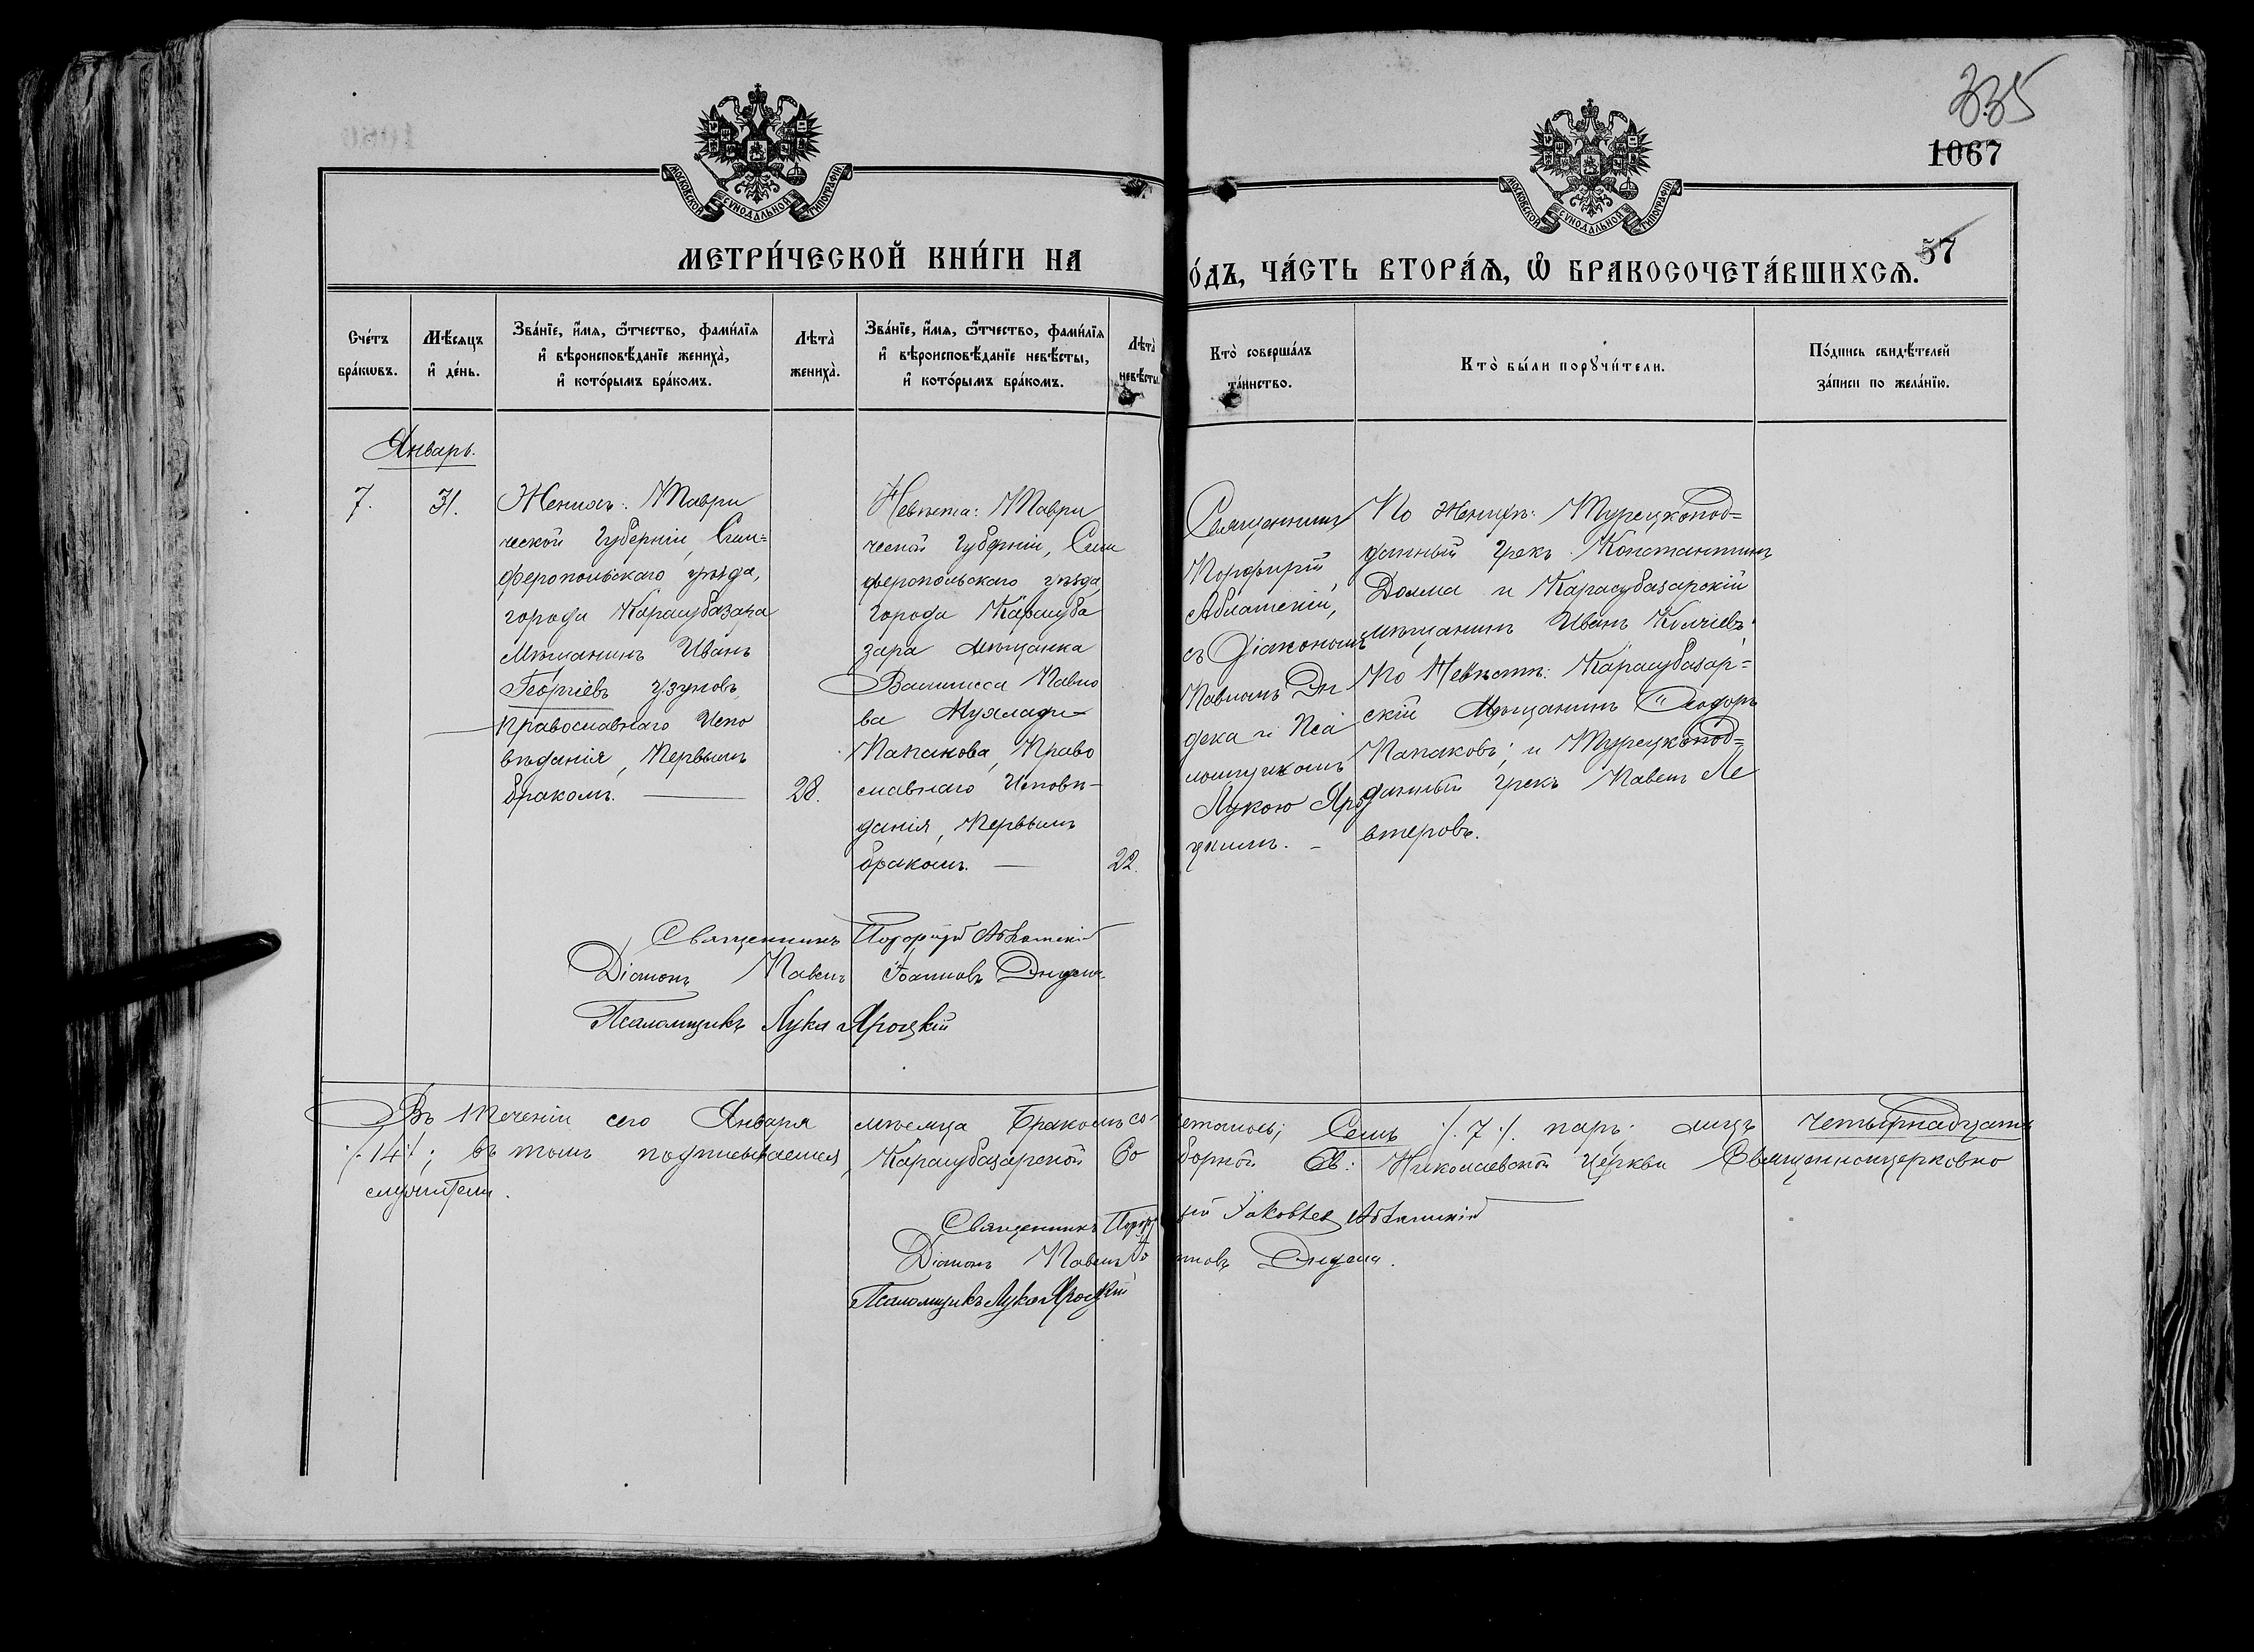 335
1067
57
МОСКОВСКОЙ СѴНОДАЛЬНОЙ ТИПОГРАФІИ
МОСКОВСКОЙ СѴНОДАЛЬНОЙ ТИПОГРАФІИ
МЕТРИ́ЧЕСКОЙ КНИ́ГИ НА
О́ДЪ, ЧА́СТЬ ВТОРА́Ѧ, Ѽ БРАКОСОЧЕТА́ВШИХСѦ.
Сче́тъ бра́кѡвъ.
Мѣ́сяцъ и҆ де́нь.
Зва́нїе, и҆́мя, ѻ҆́тчество, фами́лїя и҆ вѣроисповѣ́данїе жениха̀, и҆ кото́рымъ бра́комъ.
Лѣта̀ жениха̀.
Зва́нїе, и҆́мя, ѻ҆́тчество, фами́лїя и҆ вѣроисповѣ́данїе невѣ́сты, и҆ кото́рымъ бра́комъ.
Лѣта̀ невѣ́сты.
Кто̀ соверша́лъ та́инство.
Кто̀ бы́ли порꙋчи́тели.
По́дпись свидѣ́телей за́писи по жела́нїю.
Январь.
7.
31.
Женихъ: Таври
ческой Губерніи, Сим=
феропольскаго уѣзда,
города Карасубазара
Мѣщанинъ Иванъ
Георгіевъ Узуновъ,
Православнаго Испо
вѣданія, Первымъ
бракомъ.
28.
Невѣста: Таври
ческой Губерніи, Сим
феропольскаго уѣзда
города Карасуба
зара мѣщанка
Василисса Павло
ва
Папакова, Право
славнаго Исповѣ-
данія, Первымъ
бракомъ.
22.
Священникъ
Порфирій
Аблатскій,
съ Діакономъ
Павломъ Ди
дека и Пса
ломщикомъ
Лукою Яро
цкимъ.
По Женихѣ: Турецкопод=
данный Грекъ Константинъ
Долма и Карасубазарскій
мѣщанинъ Иванъ
По Невѣстѣ: Карасубазар=
скій Мѣщанинъ Ѳеодоръ
Папаковъ; и Турецкопод=
данный Грекъ Павелъ Ле
втеровъ.
Священникъ Порфирій Аблатскій
Діаконъ Павелъ Іоанновъ Дидека
Псаломщикъ Лука Яроцкій
Въ теченіи сего Января мѣсяца Бракомъ сочетались; Семь /.7./. паръ; лицъ четырнадцать
/.14./; въ томъ подписываемся, Карасубазарской Соборной Св: Николаевской Церкви Священноцерковно
служители.
Священникъ Порфирій Іаковлев Аблатскій
Діаконъ Павелъ Іоанновъ Дидека.
Псаломщикъ Лука Яроцкій